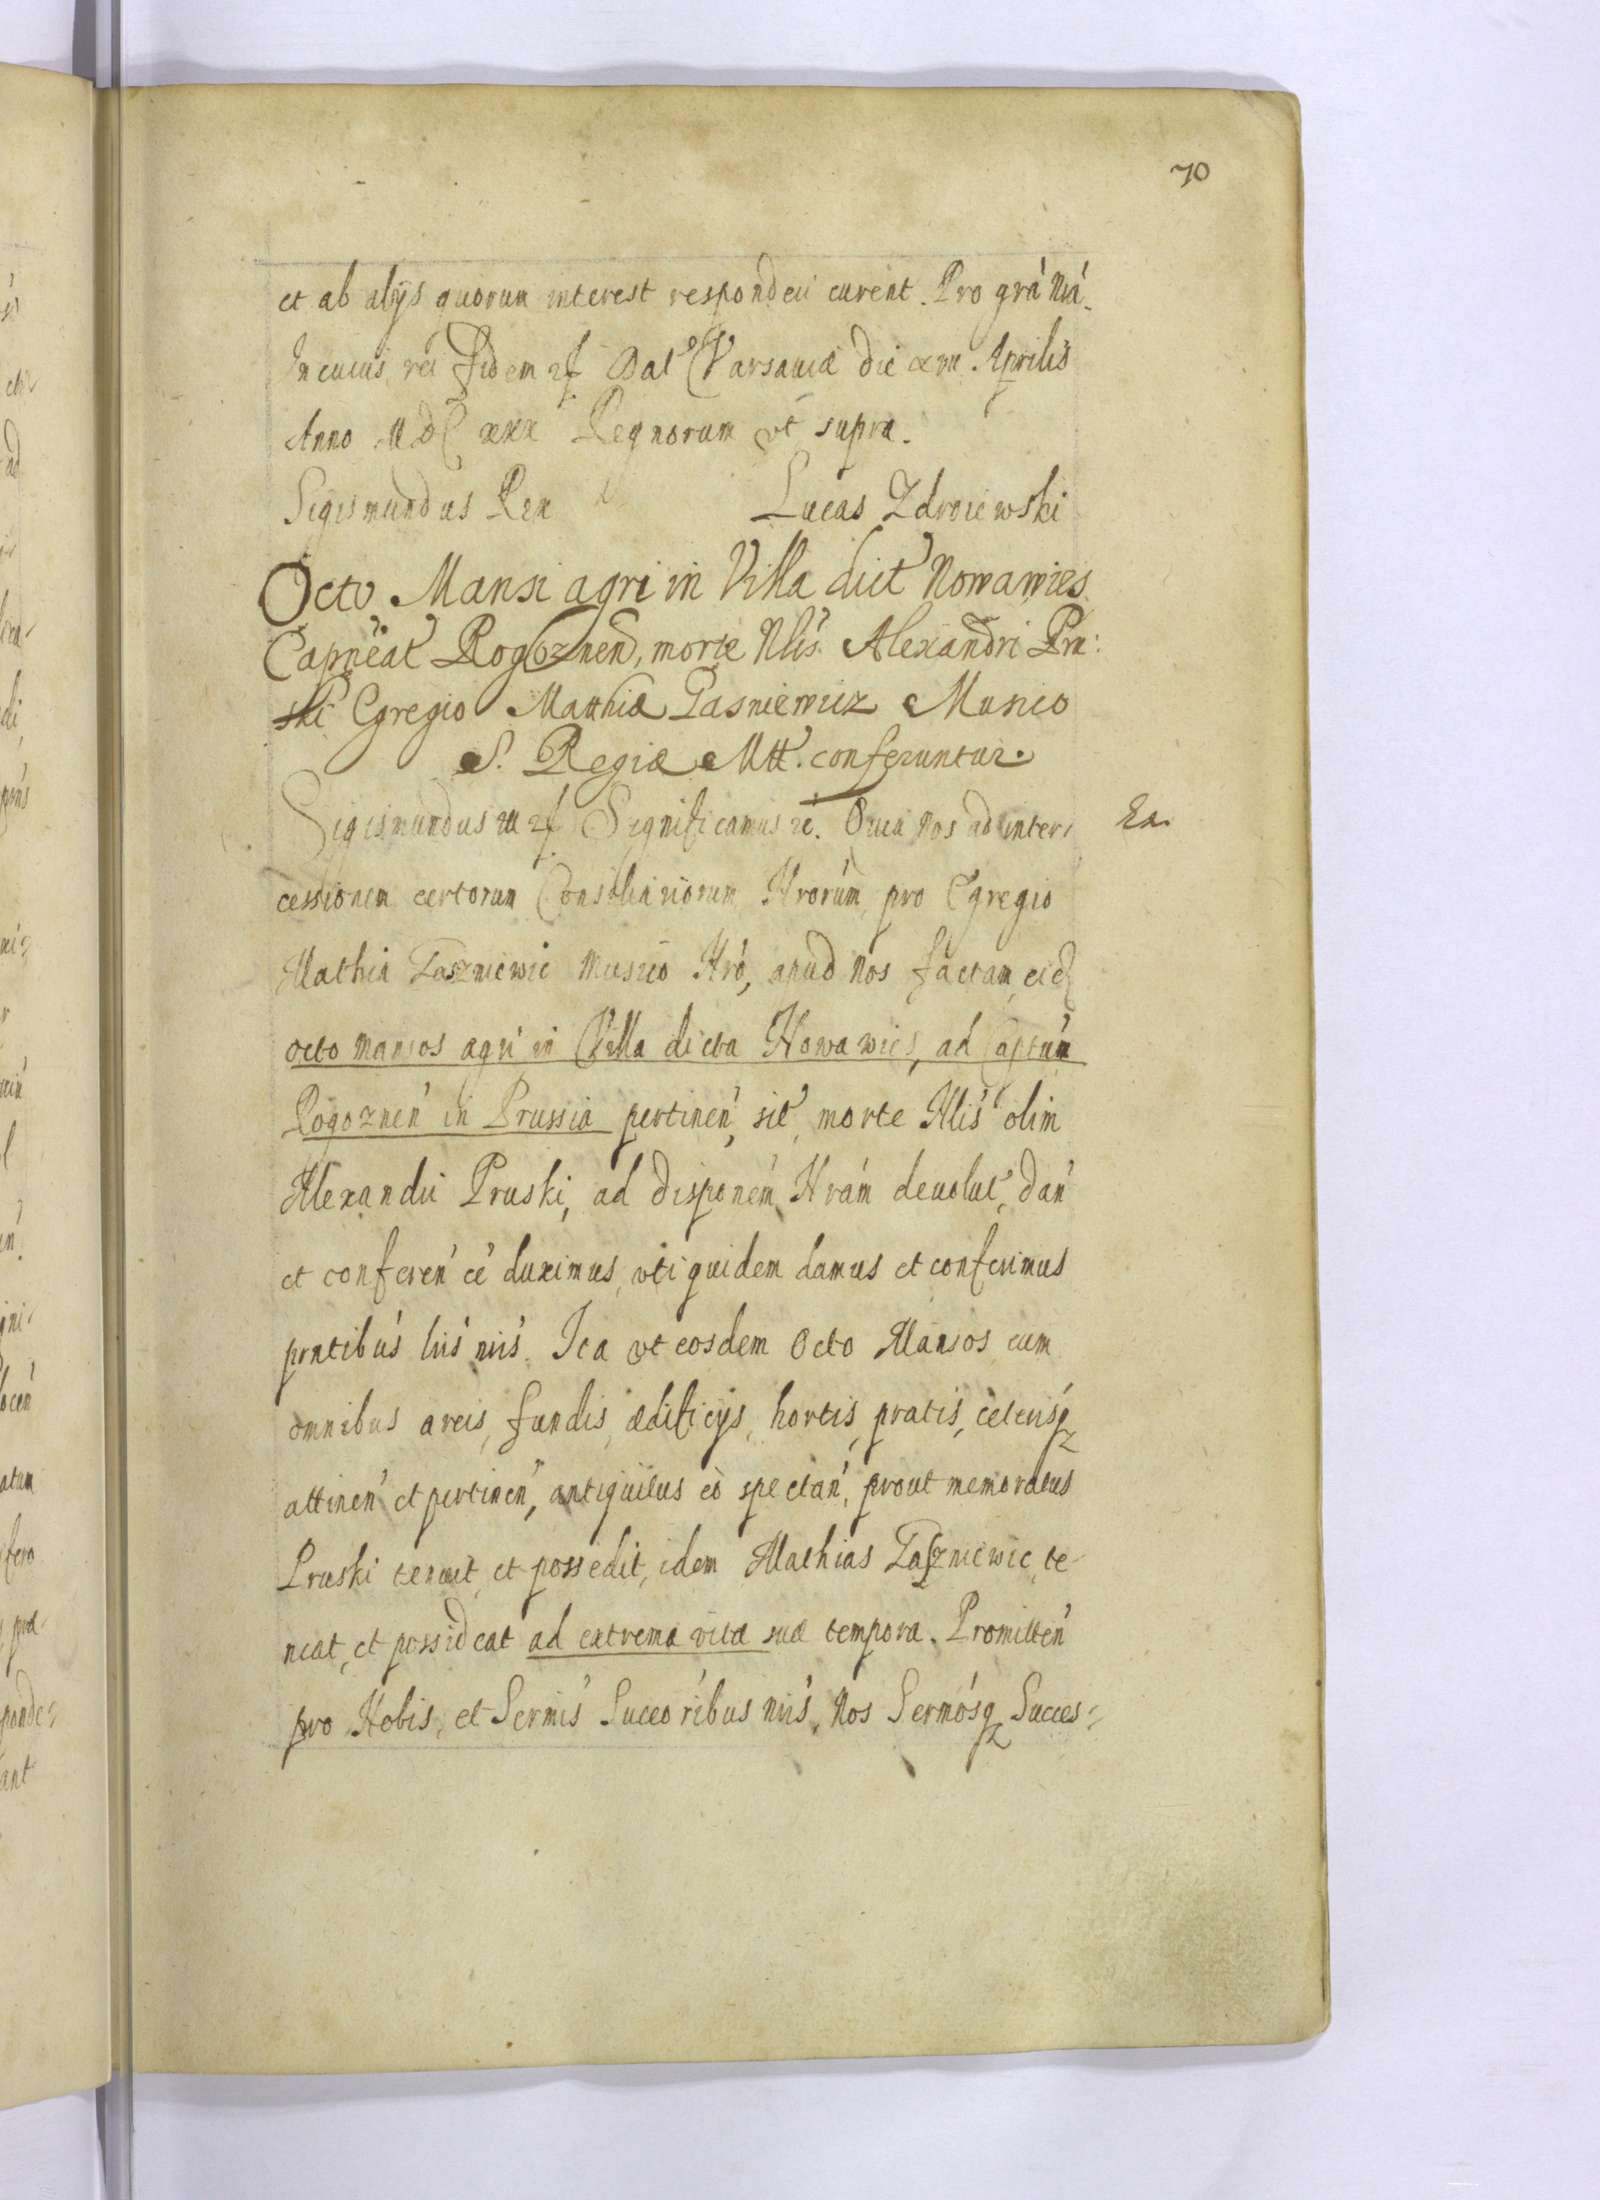 70
et ab alijs quorum interest responderi curent. Pro grá nrá.
In cuius rei fidem Dat Varsaviæ die Aprilis
Anno MDC xxx Regnorum vt supra.
Sigismundus Rex Lucas Zdroiewski
Octo Mansi agri in Villa dict Nowawies
Capneat Rogoznen, morte Nlis Alexandri Pru:
ski Egregio Matthiæ Tasniewicz Musico
S. Regiæ Mtt. conferuntur.
Sigismundus III Significamus Quia nos ad inter
cessionem certorum Consiliariorum Nrorum pro Egregio
Mathia Taszniewic Musico Nro, apud nos factam, eid
octo mansos agri in Villa dicta Nowawies, ad Captum
Rogoznen in Prussia pertinen, sit, morte Nlis olim
Alexandri Pruski, ad disponem Nram deuolut, dan
et conferen ce duximus, vti quidem damus et conferimus
pntibus lris nris. Ita vt eosdem Octo Mansos cum
omnibus areis, fundis, ædificijs, hortis, pratis, ceterisq
attinen et pertinen, antiquitus eò spectan, prout memoratus
Pruski tenuit, et possedit, idem Mathias Taszniewic te-
neat, et possideat ad extrema vitæ suæ tempora. Promitten
pro Nobis, et Sermis Succoribus nris, nos Sermosq Succes-